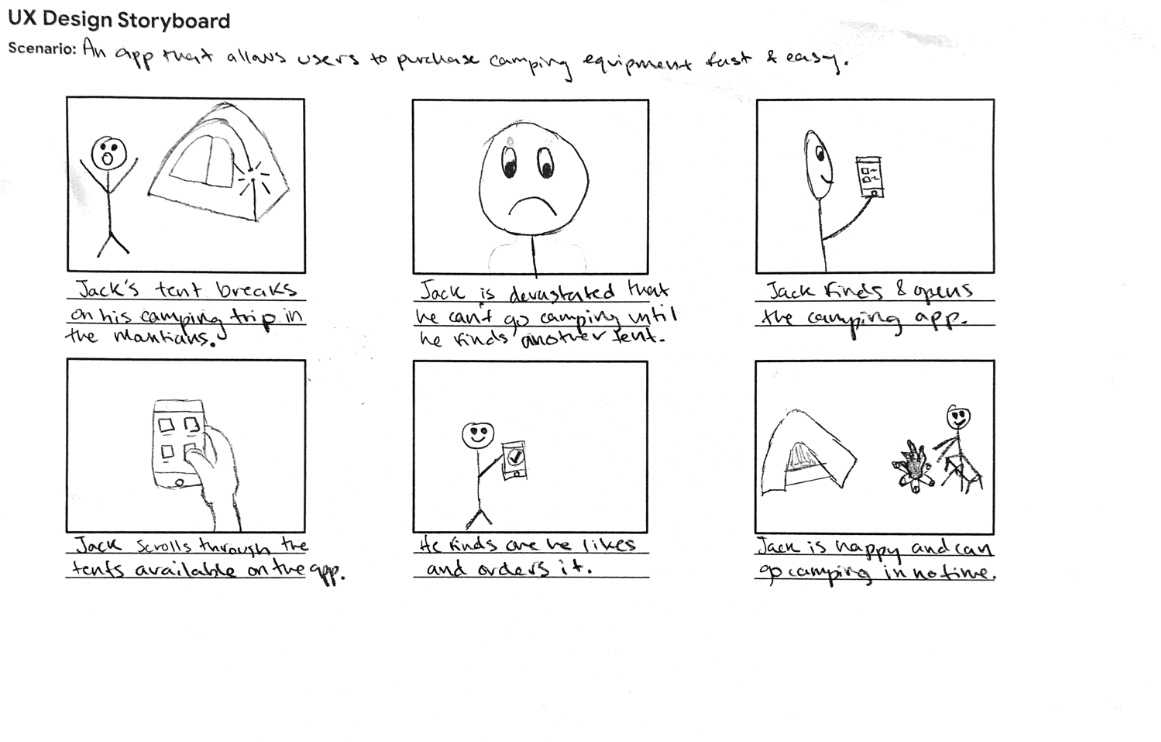 UX Design Storyboard
Scenario: An app that allows users to purchase camping equipment fast & easy.
Jack's tent breaks
on his camping trip in
the mantians.
Jack is devastated that
he can't go camping until
he finds another tent.
Jack finds & opens
the camping app.
Jack scrolls through the
tents available on the app.
He finds one he likes
and orders it.
Jack is happy and can
go camping in no time.